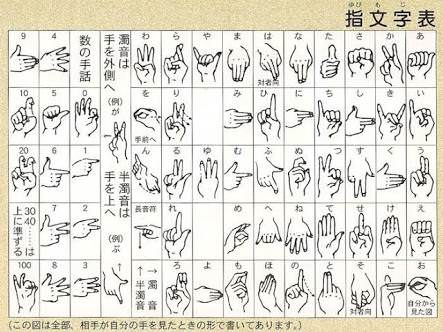 指文字表
ゆび も じ
あ
い
う
え
お
自分から見た図
か
き
く
け
こ
さ
し
す
せ
そ
対者向
た
ち
つ
て
と
な
に
ぬ
ね
の
は
対者向
ひ
ふ
へ
ほ
ま
み
む
め
も
や
ゆ
よ
ら
り
る
れ
ろ
わ
を
手前へ
ん
長音符
→濁音
↑半濁音
濁音は
手を外側へ
(例)が
半濁音は
手を上へ
(例)ぷ
数の手話
0
1
2
3
4
5
6
7
8
9
10
20
30 40……は
上に準ずる
100
(この図は全部、相手が自分の手を見たときの形で書いてあります。)